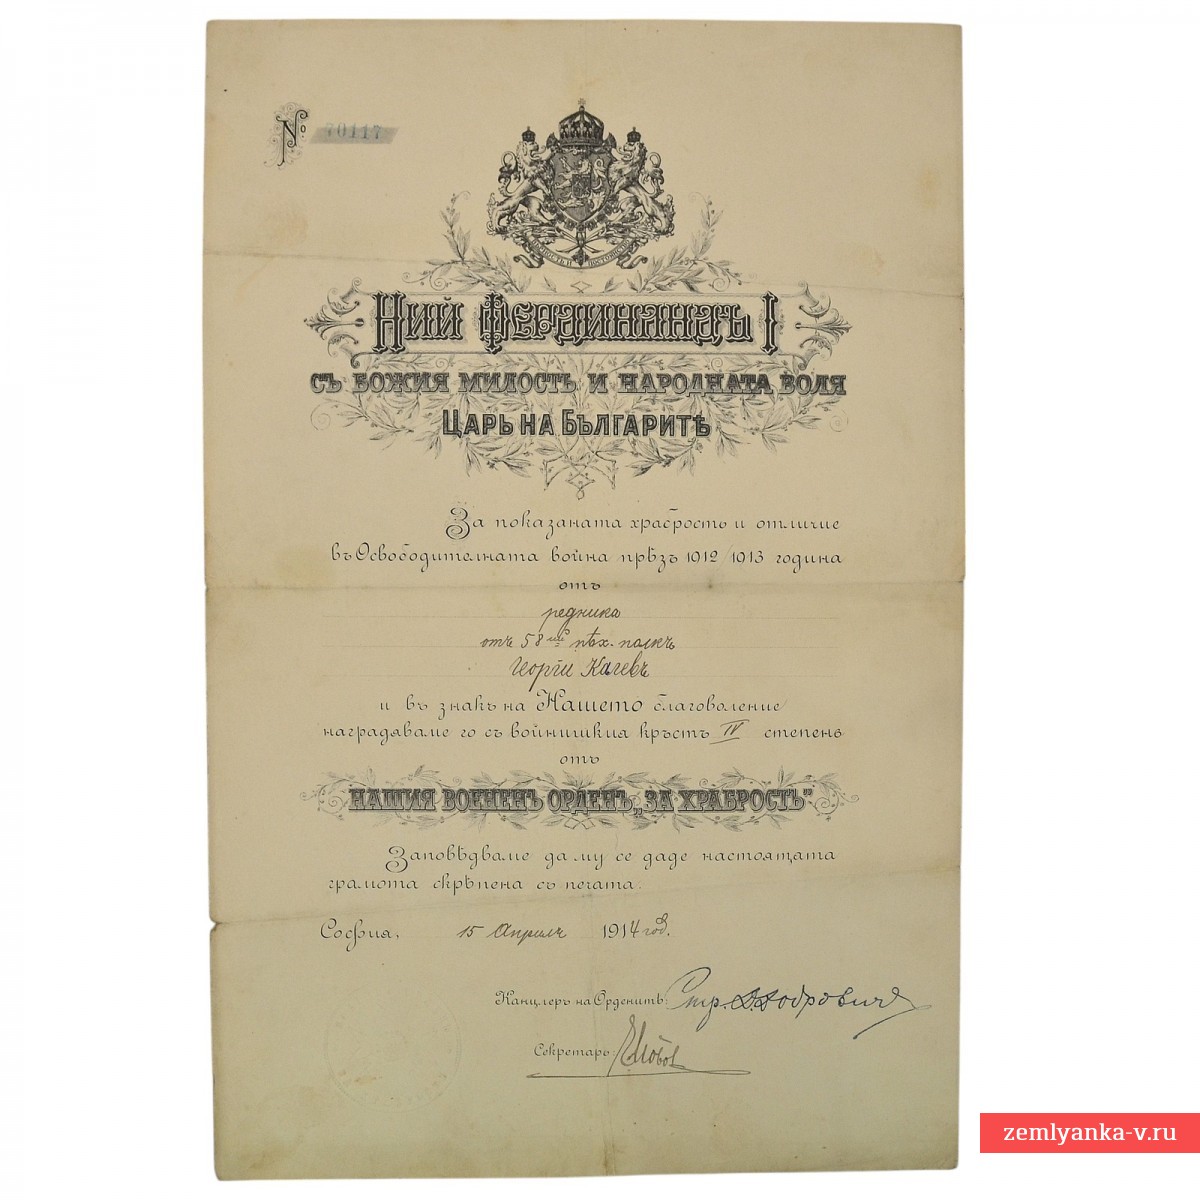 № 70117
Ний Фердинандъ I
съ Божия милость и народната воля
Царь на Българитѣ
За показаната храбрость и отличие
въ Освободителната война прѣзъ 1912/1913 година
отъ
редника
отъ 58 ий пѣх. полкъ
Георги Качевъ
и въ знакъ на Нашето благоволение
награждаваме го съ войнишкия кръстъ IV степень
отъ
Нашия военень орденъ „За храбрость“
Заповѣдваме да му се даде настоящата
грамота скрѣпена съ печата.
София, 15 Априлъ 1914 год.
Канцлеръ на Орденитѣ: Стр. Д. Добровичъ
Секретарь:
zemlyanka-v.ru